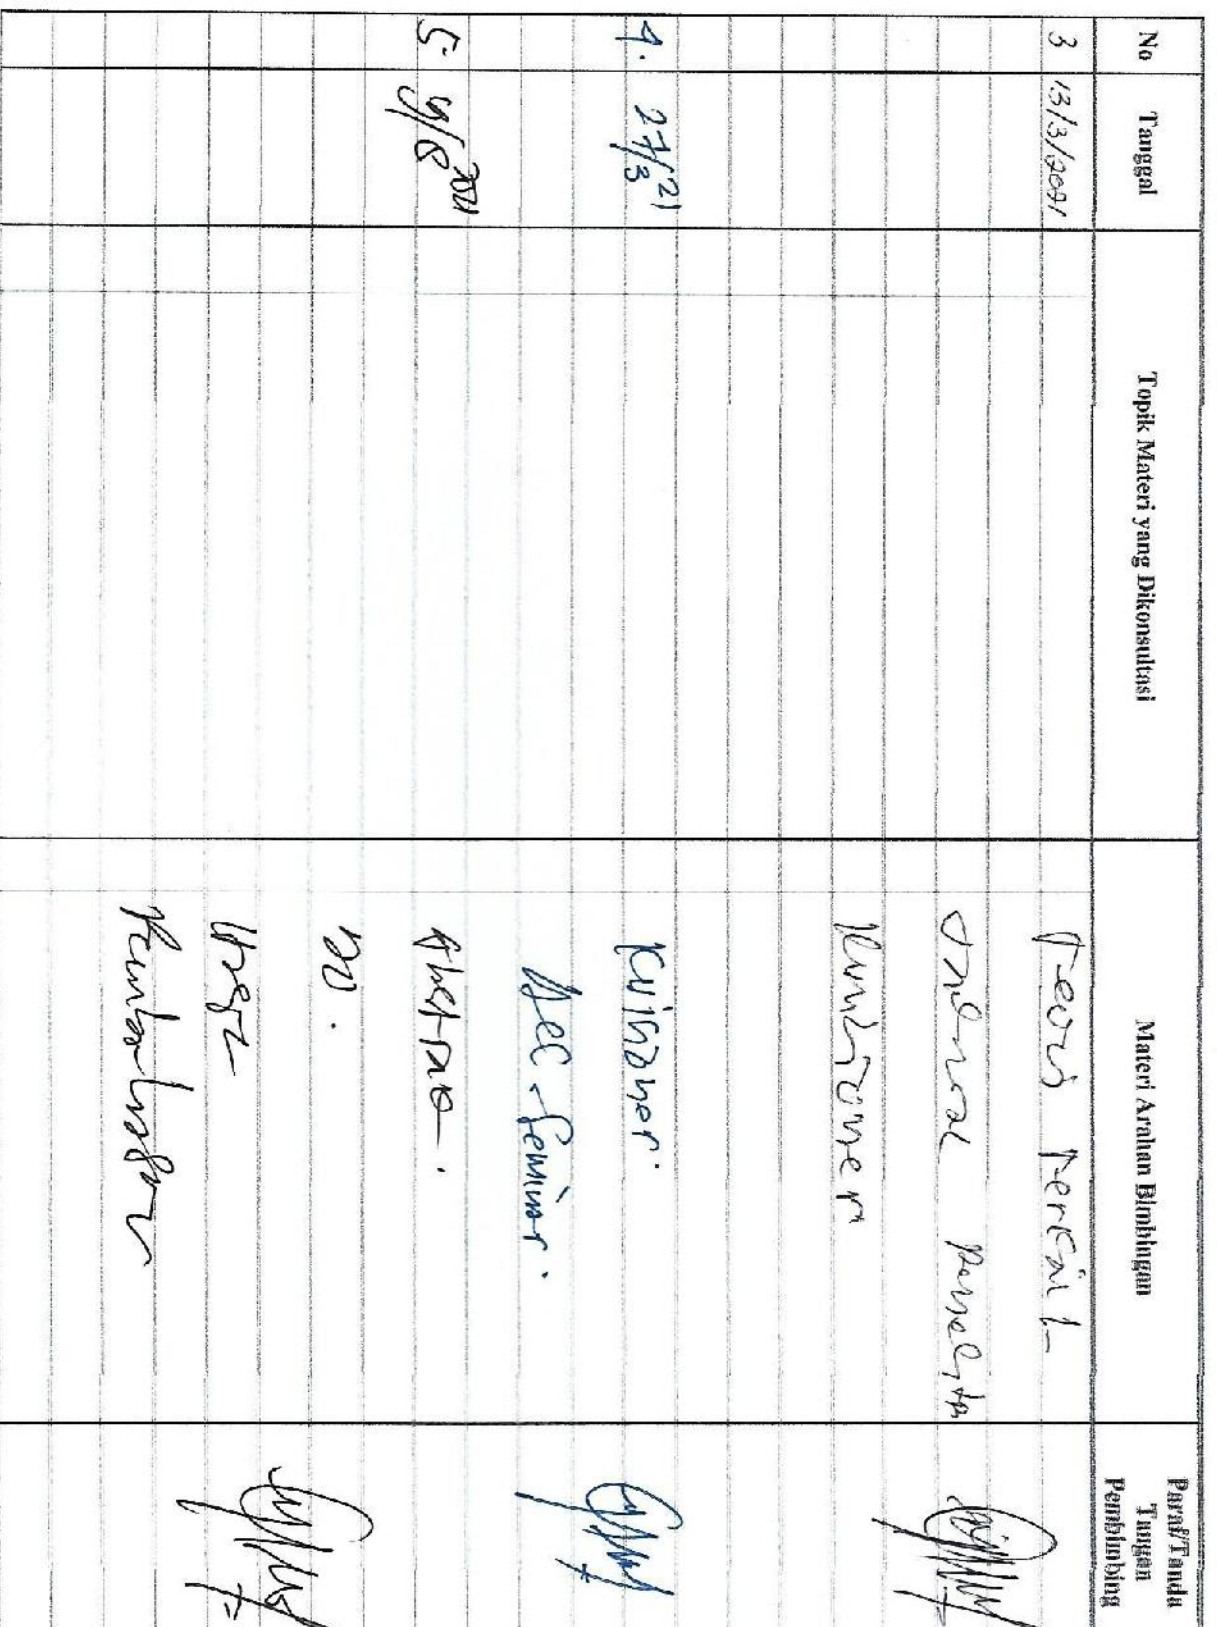 No Tanggal Topik Materi yang Dikonsultasi Materi Arahan Bimbingan Paraf/Tanda Tangan Pembimbing
3 13/3/2021 Teori Terkait
Kuisioner
4. 27/3 21 Kuisioner.
Acc Seminar.
5. /8 2021 Abstrak.
Hasil
Pembahasan